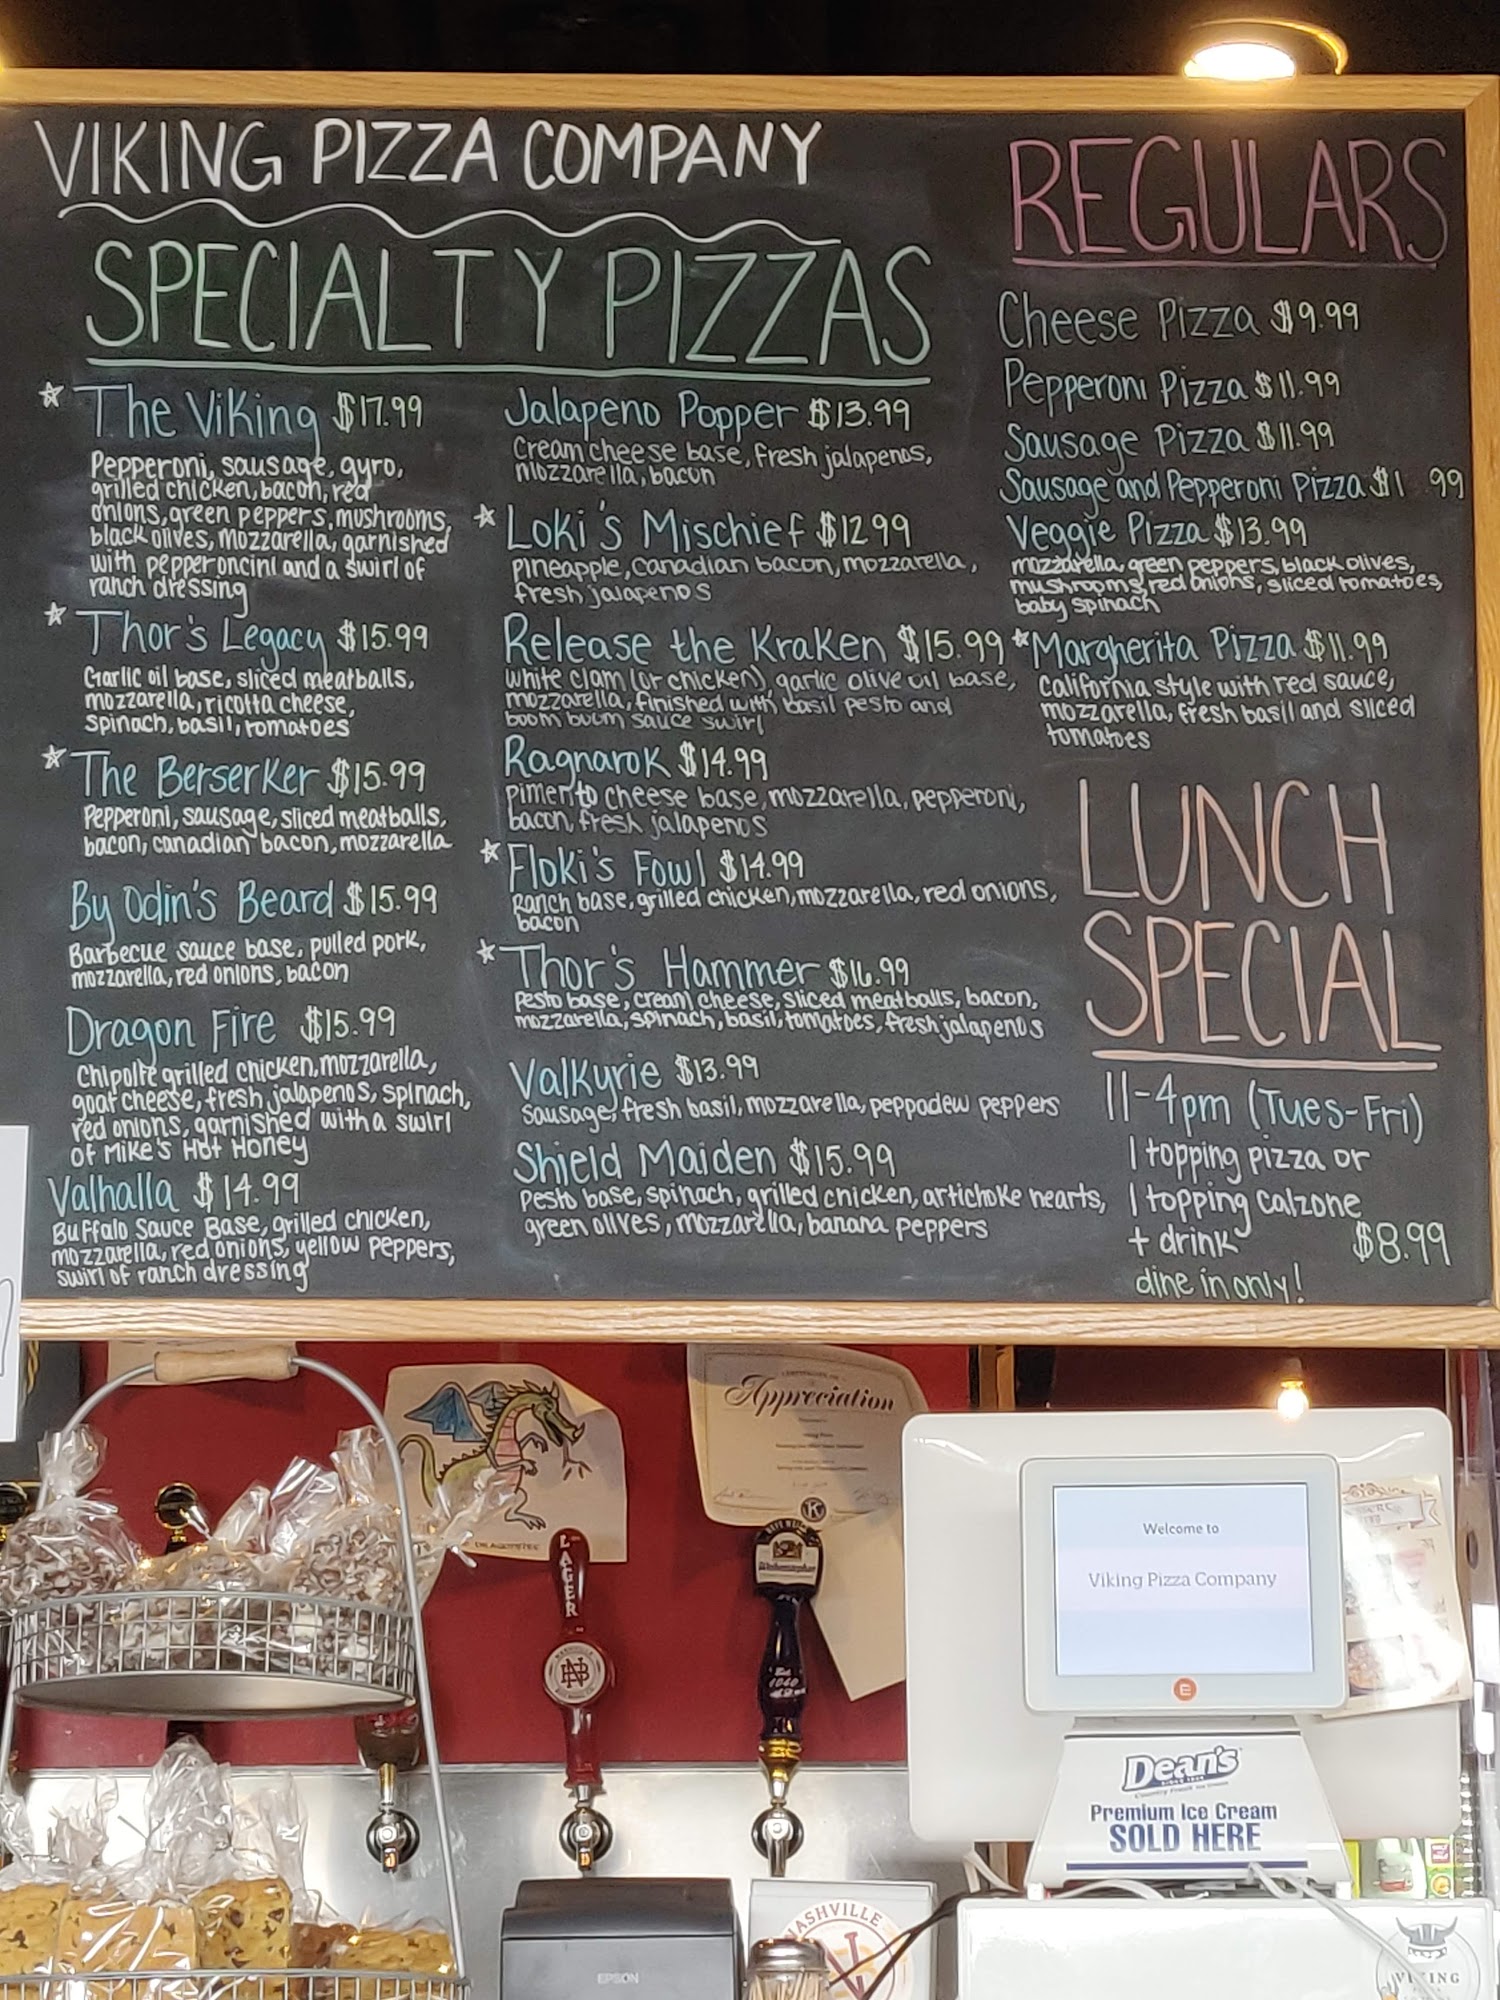 VIKING PIZZA COMPANY
SPECIALTY PIZZAS
The Viking $17.99
Pepperoni, sausage, gyro,
grilled chicken, bacon, red
onions, green peppers, mushrooms,
black olives, mozzarella, garnished
with pepperoncini and a swirl of
ranch dressing
Thor's Legacy $15.99
Garlic oil base, sliced meatballs,
mozzarella, ricotta cheese,
spinach, basil, tomatoes
The Berserker $15.99
Pepperoni, sausage, sliced meatballs,
bacon, canadian bacon, mozzarella
By Odin's Beard $15.99
Barbecue sauce base, pulled pork,
mozzarella, red onions, bacon
Dragon Fire $15.99
Chipolte grilled chicken, mozzarella,
goat cheese, fresh jalapenos, spinach,
red onions, garnished with a swirl
of Mike's Hot Honey
Valhalla $14.99
Buffalo Sauce Base, grilled chicken,
mozzarella, red onions, yellow peppers,
swirl of ranch dressing
Jalapeno Popper $13.99
Cream cheese base, fresh jalapenos,
mozzarella, bacon
Loki's Mischief $12.99
pineapple, canadian bacon, mozzarella,
fresh jalapenos
Release the Kraken $15.99
white clam (or chicken), garlic olive oil base,
mozzarella, finished with basil pesto and
boom boom sauce swirl
Ragnarok $14.99
pimento cheese base, mozzarella, pepperoni,
bacon, fresh jalapenos
Floki's Fowl $14.99
Ranch base, grilled chicken, mozzarella, red onions,
bacon
Thor's Hammer $16.99
Pesto base, cream cheese, sliced meatballs, bacon,
mozzarella, spinach, basil, tomatoes, fresh jalapenos
Valkyrie $13.99
Sausage, fresh basil, mozzarella, peppadew peppers
Shield Maiden $15.99
Pesto base, spinach, grilled chicken, artichoke hearts,
green olives, mozzarella, banana peppers
REGULARS
Cheese Pizza $9.99
Pepperoni Pizza $11.99
Sausage Pizza $11.99
Sausage and Pepperoni Pizza $1 99
Veggie Pizza $13.99
mozzarella, green peppers, black olives,
mushrooms, red onions, sliced tomatoes,
baby spinach
Margherita Pizza $11.99
California style with red sauce,
mozzarella, fresh basil and sliced
tomatoes
LUNCH
SPECIAL
11-4pm (Tues-Fri)
1 topping pizza or
1 topping calzone
+ drink $8.99
dine in only!
Appreciation
LAGER
NASHVILLE
Welcome to
Viking Pizza Company
Dean's
Premium Ice Cream
SOLD HERE
EPSON
NASHVILLE
VIKING